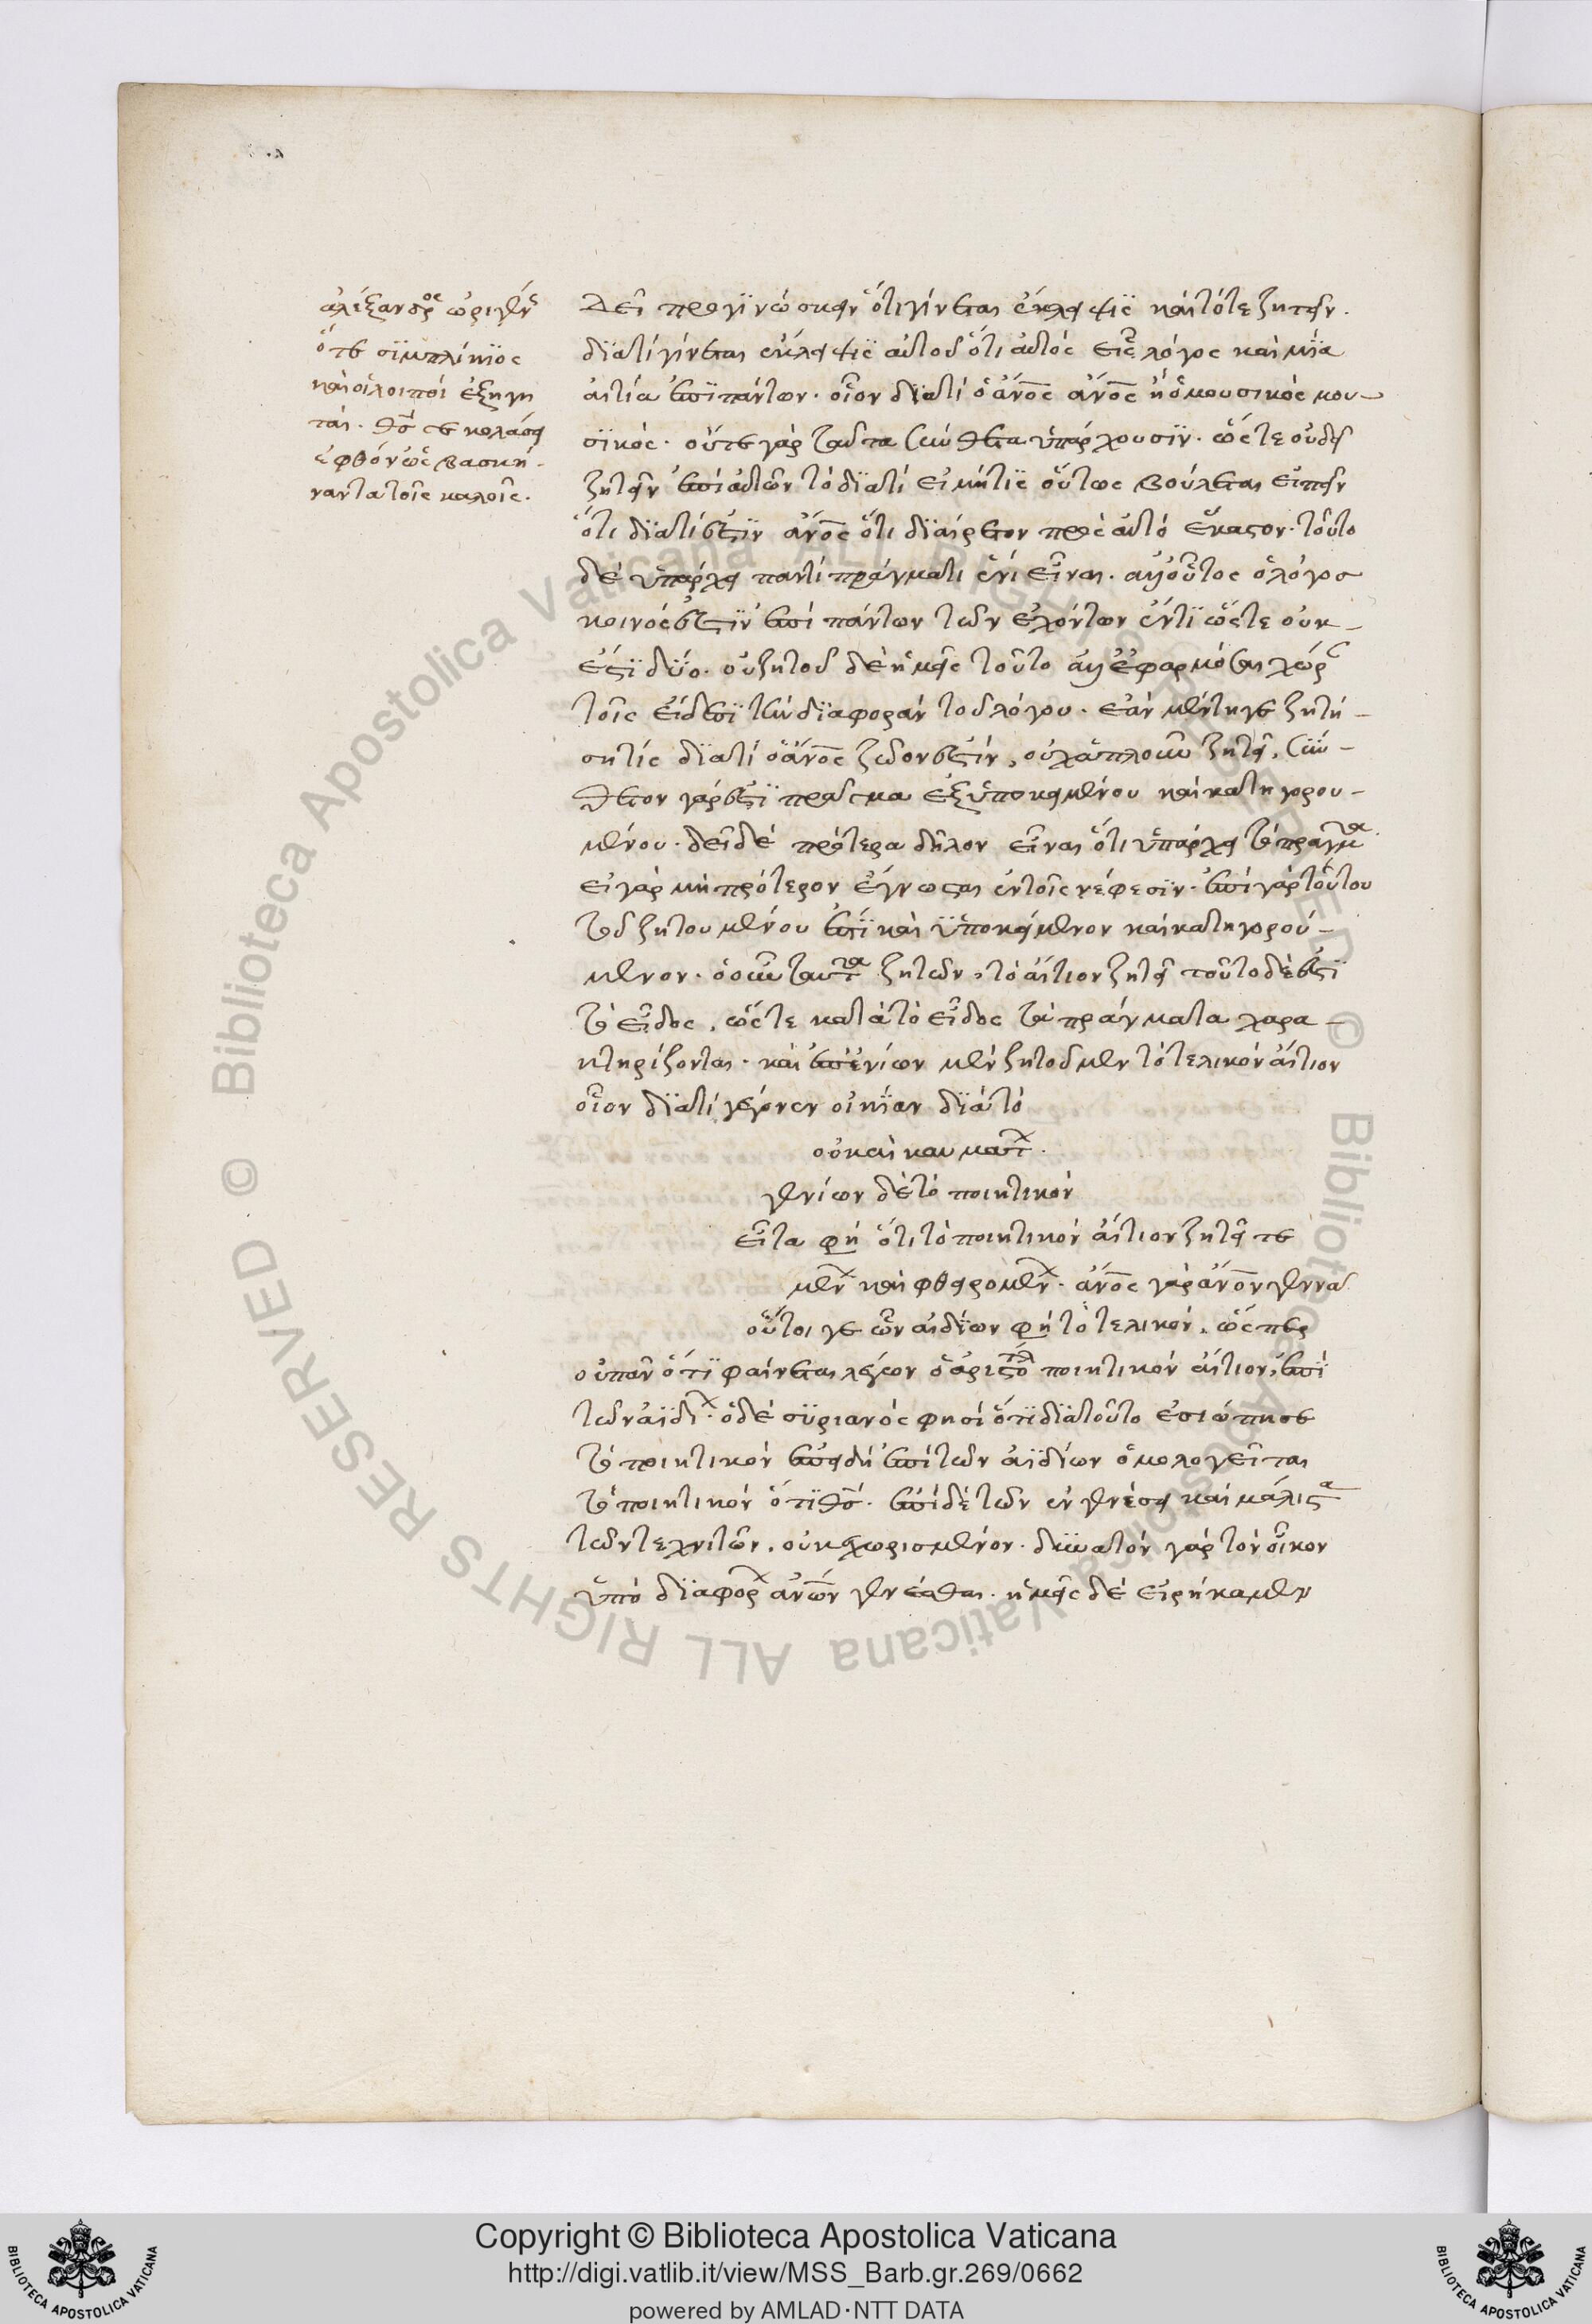 ἀλέξανδρος ὠριγέν
ὅτε σϊμπλίκϊος
καὶ οἱ λοιποὶ ἐξηγη
ταί. θσ τε κολάση
ἐφθόνως βασκή-
ναντα τοῖς καλοῖς.
Δεῖ προγϊνώσκειν ὅτι γίνεται ἔκλειψϊς καὶ τότε ζητεῖν.
δϊατί γίνεται ἔκλειψϊς αὐτοῦ ὅτι αὐτός εἷς λόγος καὶ μΐα
αἰτία ἐπῒ πάντων. οἷον δϊατί ὁ ἄνος ἄνος ἢ ὁ μουσικὸς μου-
σϊκός. οὔτε γὰρ ταῦτα σύνθετα ὑπάρχουσϊν. ὥςτε οὐδεὶ
ζητεῖν ἐπὶ αὐτῶν τὸ δϊατί εἰ μήτϊς οὕτως βούλεται εἰπεῖν
ὅτι δϊατί ἐστϊν ἄνος ὅτι δϊαίρετον πρὸς αὐτό ἕκαστον. τοῦτο
δὲ ὑπάρχει παντὶ πράγματι ἑνὶ εἶναι. ἀλλ οὗτος ὁ λόγος
κοινός ἐστϊν ἐπὶ πάντων τῶν ἐχόντων ἕν τϊ ὥςτε οὐκ-
ἔστϊ δΰο. οὐ ζητοῦ δὲ ἡμεῖς τοῦτο ἀλλ ἐφαρμόσαι χωρὶς
τοῖς εἴδεσϊ τὴν δϊαφορὰν τοῦ λόγου. ἐὰν μέντηγε ζητή-
ση τίς δϊατί ὁ ἄνος ζῶον ἐστΐν, οὐχ ἁπλοῦν ζητεῖ, σύν-
θετον γάρ ἐστϊ πρᾶγμα ἐξ ὑποκειμένου καὶ κατηγορου-
μένου. δεῖ δὲ πρότερα δῆλον εἶναι ὅτι ὑπάρχει τὸ πρᾶγμα
εἰ γὰρ μὴ πρότερον ἔγνωσται ἐν τοῖς νέφεσϊν. ἐπὶ γὰρ τούτου
τοῦ ζητουμένου ἐστῒ καὶ ὑποκείμενον καὶ κατηγορού-
μενον. ὁ οὖν ταῦτα ζητῶν, τὸ αἴτιον ζητεῖ τοῦτο δέ ἐστϊ
τὸ εἶδος, ὥςτε κατὰ τὸ εἶδος τὰ πράγματα χαρα-
κτηρίζονται. καὶ ἐπ ἐνίων μὲν ζητοῦμεν τὸ τελικὸν αἴτιον
οἷον δϊατί γέγονεν οἰκΐαν δϊὰ τὸ
οὐκαὶ καυματ.
γενίων δὲ τὸ ποιητικόν
εἶτα φη ὅτι τὸ ποιητικὸν αἴτιον ζητεῖ τε
μεν καὶ φθειρομεν. ἄνος γὰρ ἄνον γεννᾶ
οὗτοι γε ὧν αἰδΐων φη τὸ τελικόν, ὥςπερ
οὐπαν ὅτϊ φαίνεται λέγων ὁ ἀριστο ποιητικὸν αἴτιον, ἐπὶ
τῶν ἀϊδι. ὁ δὲ σϋριανὸς φησὶ ὅτϊ δϊὰ τοῦτο ἐσιώπησε
τὸ ποιητικὸν ἐπειδὴ ἐπὶ τῶν ἀϊδίων ὁμολογεῖται
τὸ ποιητικὸν ὅτϊ θσ. ἐπὶ δὲ τῶν ἐν γενέσει καὶ μάλιστα
τῶν τεχνιτῶν, οὐ κεχωρισμένον. δυνατὸν γὰρ τὸν οἶκον
ὑπὸ δϊαφορ ἀνῶν γενέσθαι. ἡμεῖς δὲ εἰρήκαμεν
Copyright © Biblioteca Apostolica Vaticana
http://digi.vatlib.it/view/MSS_Barb.gr.269/0662
powered by AMLAD·NTT DATA
BIBLIOTECA APOSTOLICA VATICANA
BIBLIOTECA APOSTOLICA VATICANA
© Biblioteca Apostolica Vaticana ALL RIGHTS RESERVED
© Biblioteca Apostolica Vaticana ALL RIGHTS RESERVED